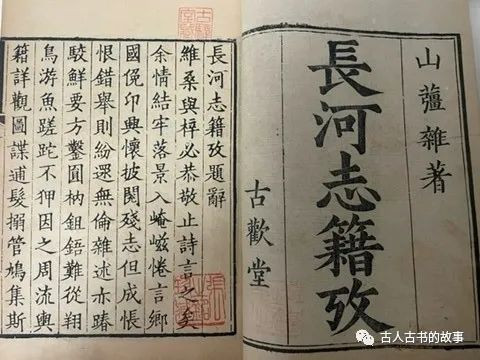 山薑雜著
長河志籍攷
古歡堂
長河志籍攷題辭
維桑與梓必恭敬止詩言之矣
余情結牢落景入崦嵫惓言鄉
國俛卬興懷披閱殘志但成悵
恨錯舉則紛遝無倫雜述亦踳
駮鮮要方鑿圓枘鉏鋙難從翔
鳥游魚蹉跎不狎因之周流輿
籍詳觀圖諜逋髮搦管鳩集斯
古人古书的故事